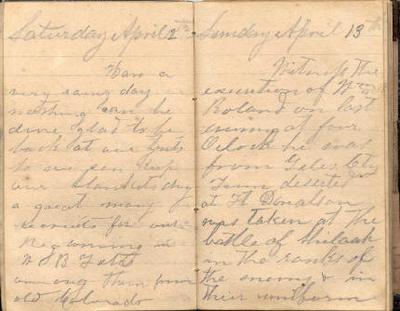 Saturday April 12th
Have a
very rainy day
nothing can be
done glad to be
back at our tents
to
our blankets dry
a great many
recruits for our
Regiment
W B
among them from
old Colorado
Sunday April 13th
Witness the
execution of Wm
Roland on last
evening at four
Oclock he was
from
Tenn deserted
at Ft Donalson
was taken at the
battle of Shiloah
in the ranks of
the enemy & in
their uniform